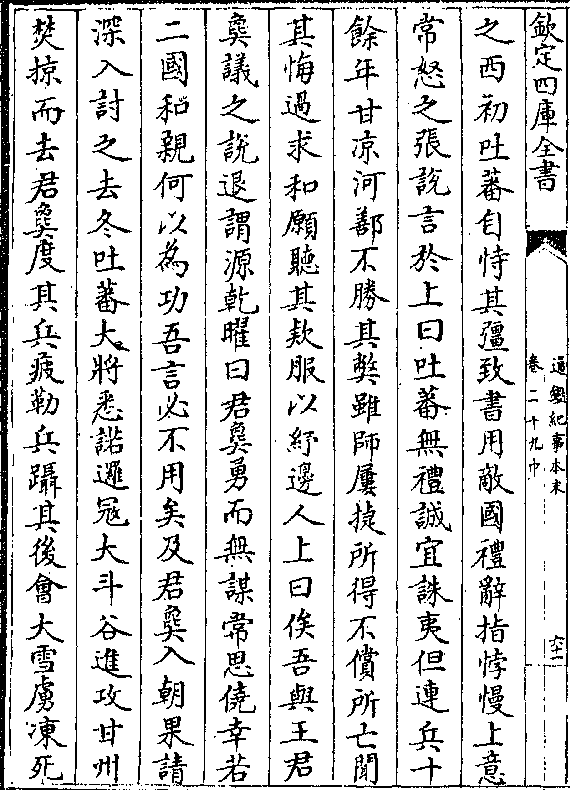 欽定四庫全書
通鑑紀事本末
卷二十九中
六十一
之西初吐蕃自恃其彊致書用敵國禮辭指悖慢上意
常怒之張説言於上曰吐蕃無禮誠宜誅夷但連兵十
餘年甘凉河鄯不勝其弊雖師屢捷所得不償所亡聞
其悔過求和願聽其欵服以紓邊人上曰俟吾與王君
㚟議之説退謂源乾曜曰君㚟勇而無謀常思僥幸若
二國和親何以為功吾言必不用矣及君㚟入朝果請
深入討之去冬吐蕃大將悉諾邏冦大斗谷進攻甘州
焚掠而去君㚟度其兵疲勒兵躡其後會大雪虜凍死